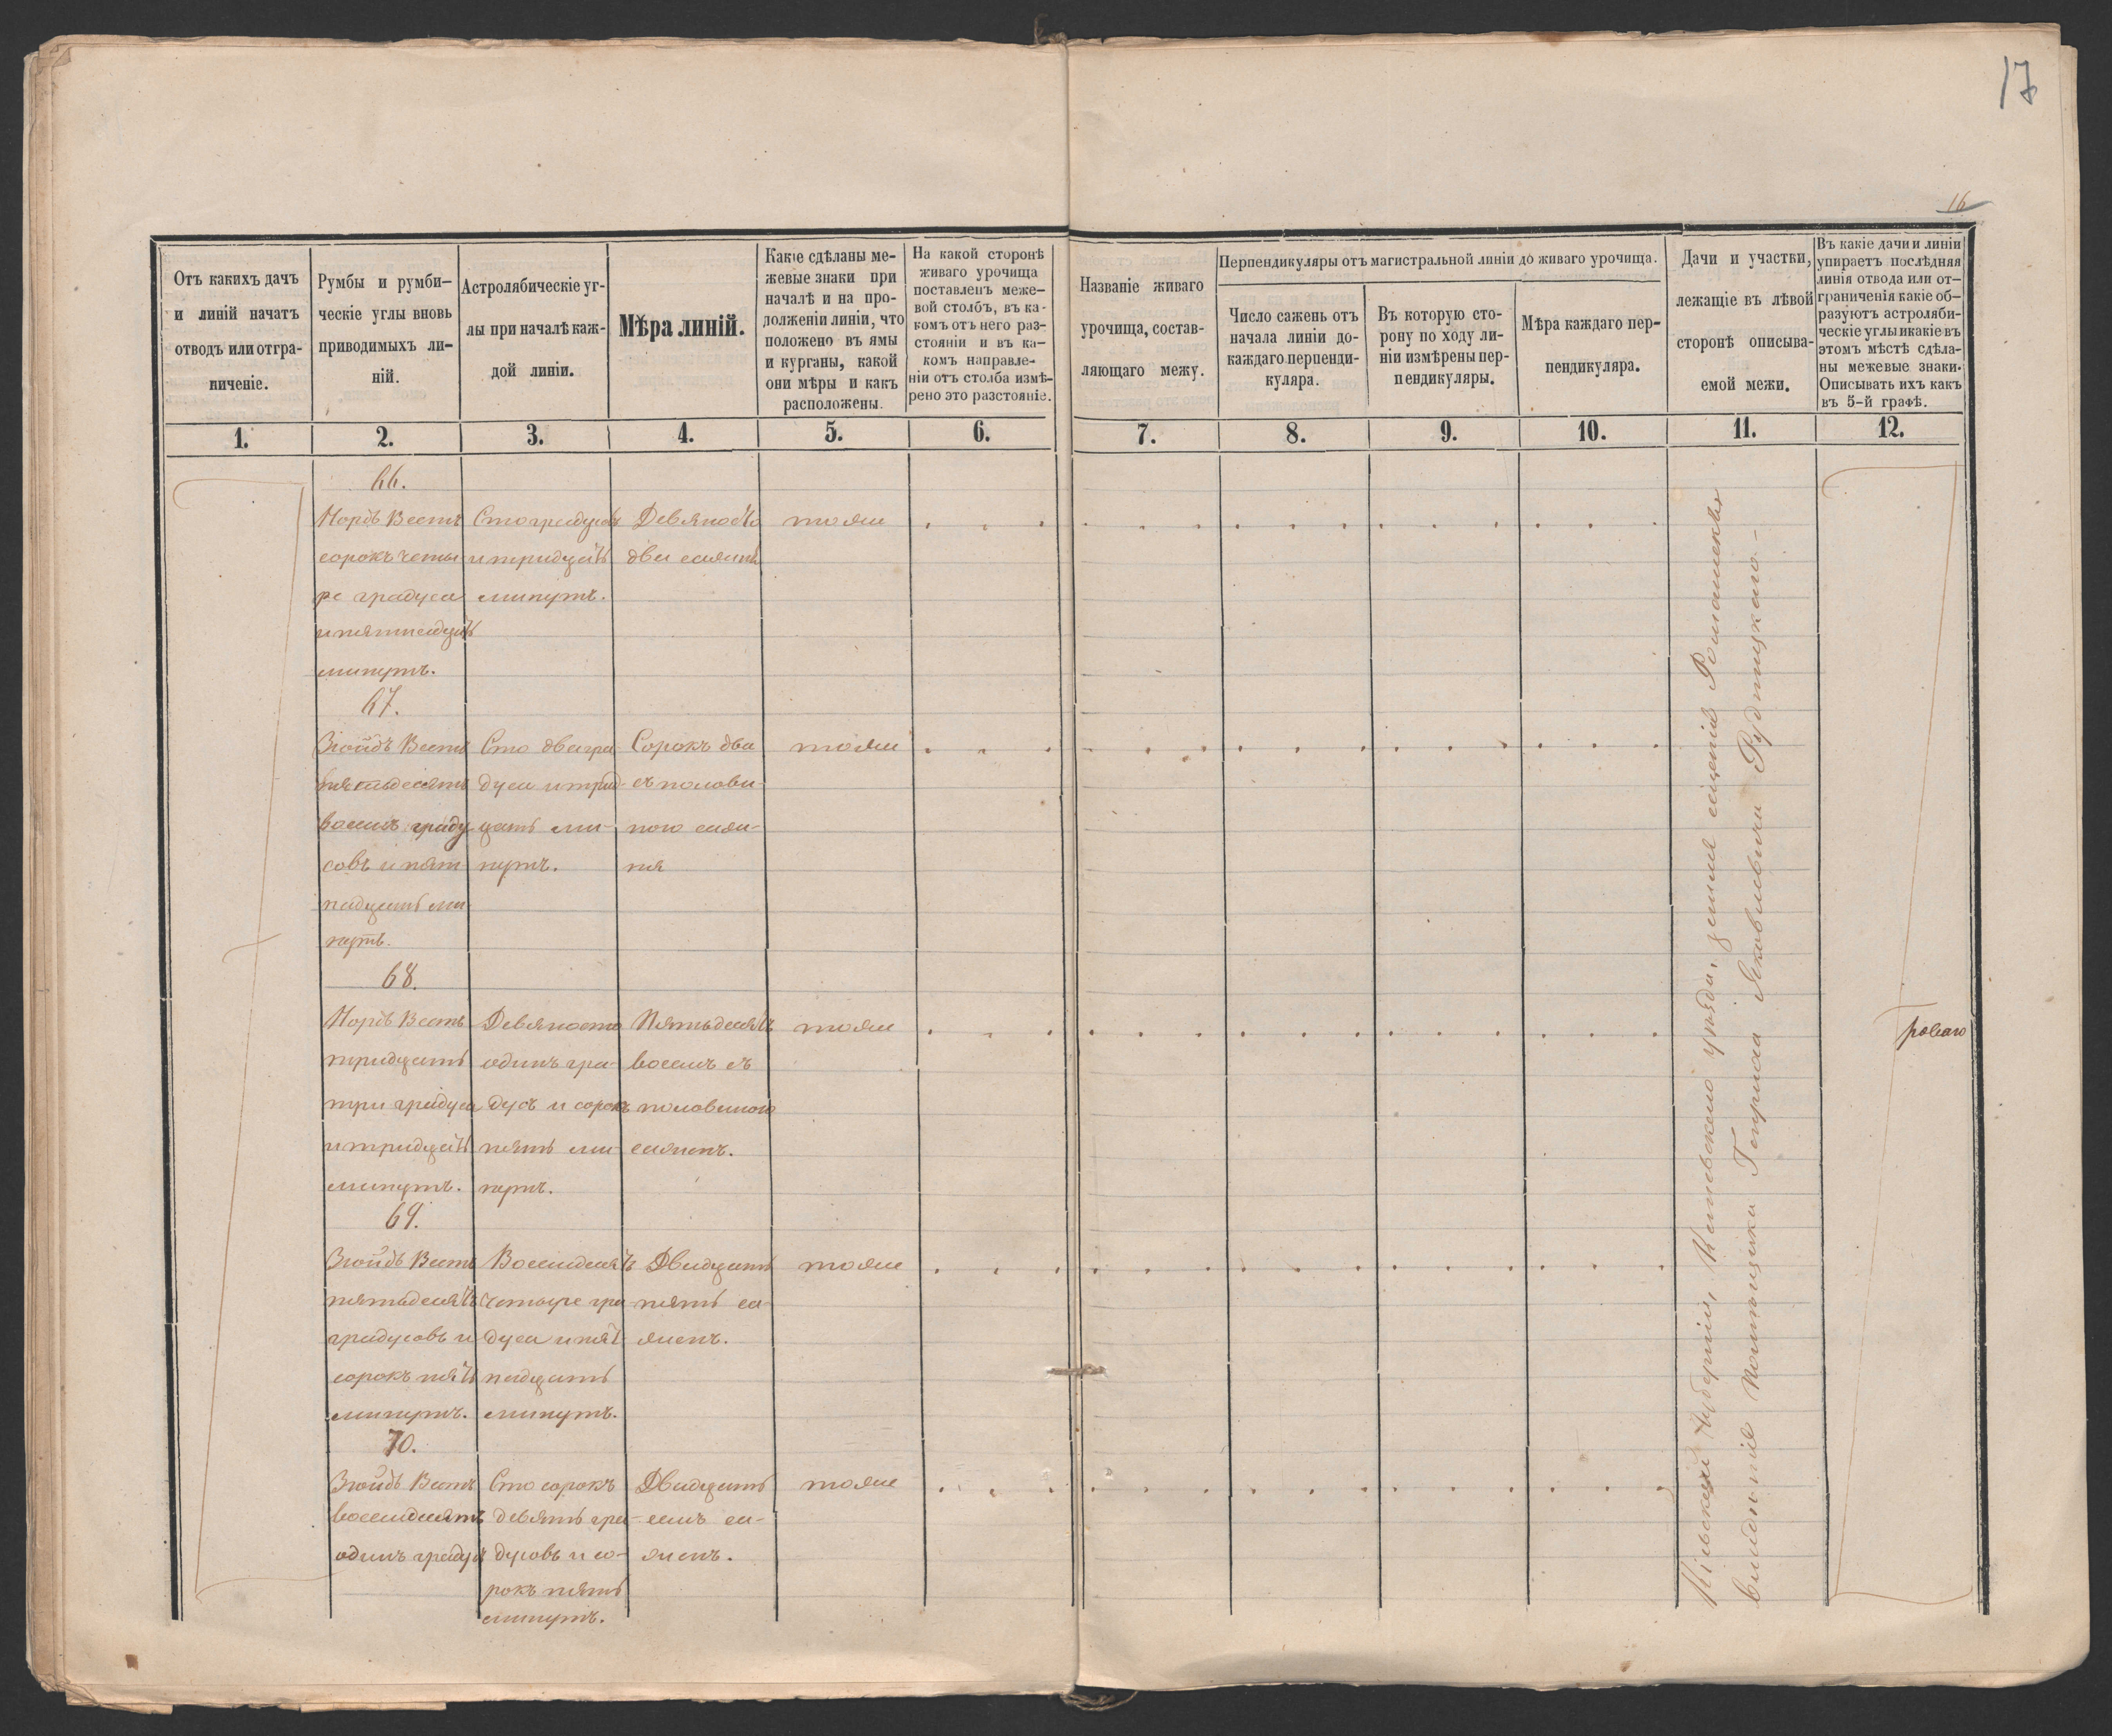 17
16
Отъ какихъ дачъ
и линій начатъ
отводъ или отгра-
ниченіе.
Румбы и румби-
ческіе углы вновь
приводимыхъ ли-
ній.
Астролябическіе уг-
лы при началѣ каж-
дой линіи.
Мѣра линій.
Какіе сдѣланы ме-
жевые знаки при
началѣ и на про-
долженіи линіи, что
положено въ ямы
и курганы, какой
они мѣры и какъ
расположены.
На какой сторонѣ
живаго урочища
поставленъ меже-
вой столбъ, въ ка-
комъ отъ него раз-
стояніи и въ ка-
комъ направле-
ніи отъ столба измѣ-
рено это разстояніе.
Названіе живаго
урочища, состав-
ляющаго межу.
Перпендикуляры отъ магистральной линіи до живаго урочища.
Число сажень отъ
начала линіи до-
каждаго перпенди-
куляра.
Въ которую сто-
рону по ходу ли-
ніи измѣрены пер-
пендикуляры.
Мѣра каждаго пер-
пендикуляра.
Дачи и участки,
лежащіе въ лѣвой
сторонѣ описыва-
емой межи.
Въ какіе дачи и линіи
упираетъ послѣдняя
линія отвода или от-
граниченія какіе об-
разуютъ астроляби-
ческіе углы и какіе въ
этомъ мѣстѣ сдѣла-
ны межевые знаки.
Описывать ихъ какъ
въ 5-й графѣ.
1. 2. 3. 4. 5. 6. 7. 8. 9. 10. 11. 12.
66.
Нордъ Вестъ
сорокъ четы
ре градуса
и пятнадцать
минутъ.
Сто градусовъ
и тридцать
минутъ.
Девяносто
два сажня
тоже
67.
Зюйдъ Вестъ
пятьдесятъ
восемь граду
совъ и пят-
надцать ми
нутъ.
Сто два гра-
дуса и трид-
цать ми-
нутъ.
Сорокъ два
съ полови-
ною саж-
ня
тоже
68.
Нордъ Вестъ
тридцать
три градуса
и тридцать
минутъ.
Девяносто
одинъ гра-
дусъ и сорокъ
пять ми
нутъ.
Пятьдесятъ
восемь съ
половиною
саженъ.
тоже
69.
Зюйдъ Вестъ
пятьдесятъ
градусовъ и
сорокъ пять
минутъ.
Восемдесятъ
четыре гра
дуса и пят
надцать
минутъ.
Двадцать
пять са-
женъ.
тоже
70.
Зюйдъ Вестъ
восемдесятъ
одинъ градусъ
Сто сорокъ
девять гра-
дусовъ и со-
рокъ пять
минутъ.
Двадцать
семь са-
женъ.
тоже
Кіевской губерніи, уѣзда, земля Романовка
владѣнія помѣщика Генриха Яковлевича Рудницкаго